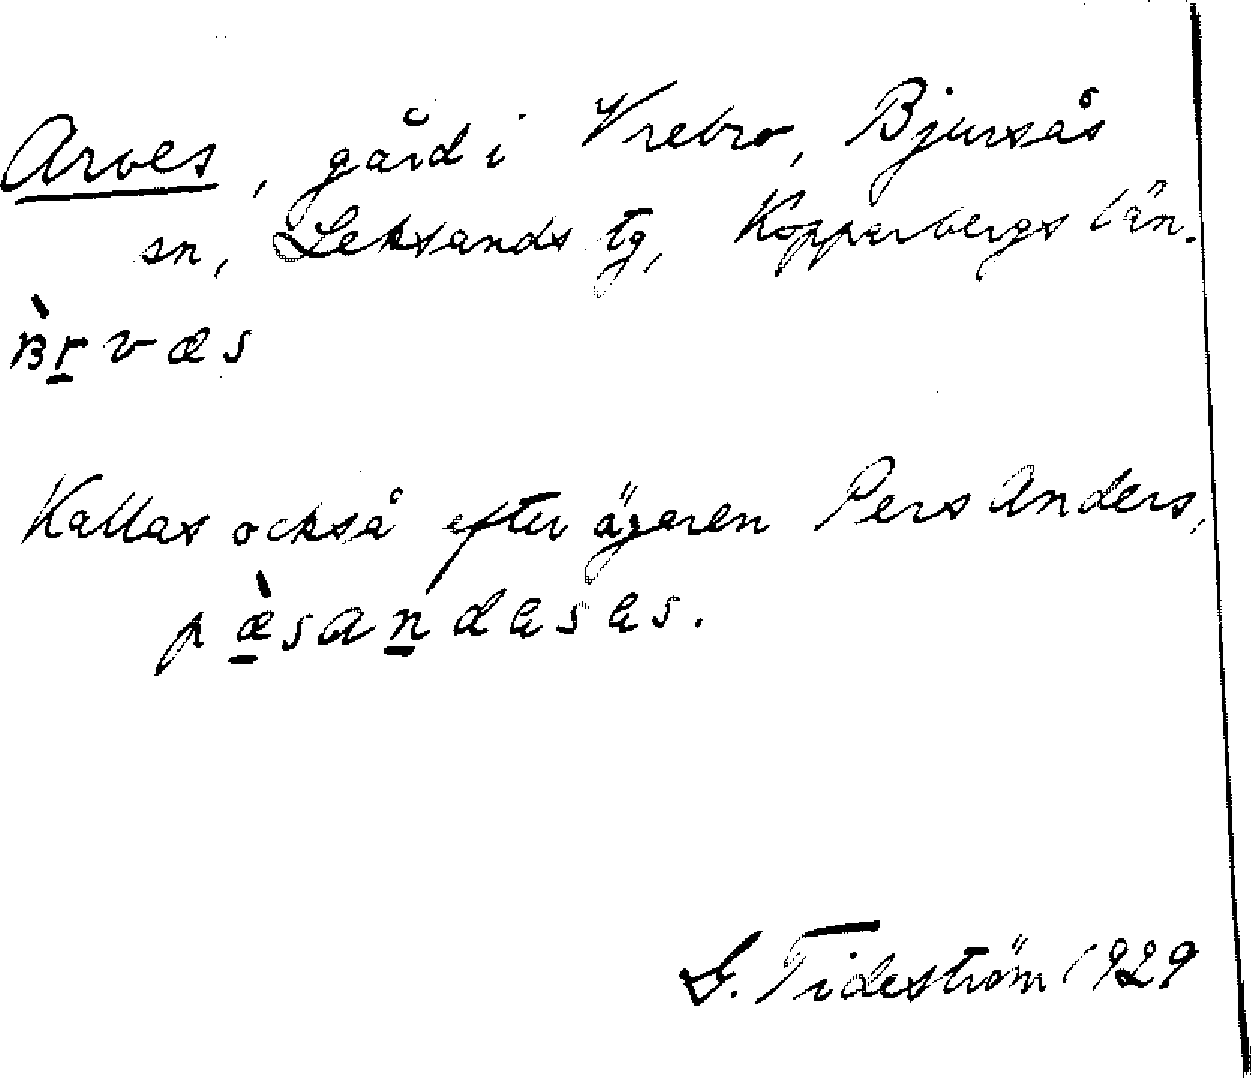 Arves, gård i Vrebro, Bjursås
sn, Leksands tg, Kopparbergs län.
Kallas också efter ägaren Pers Anders,
G. Tideström 1929